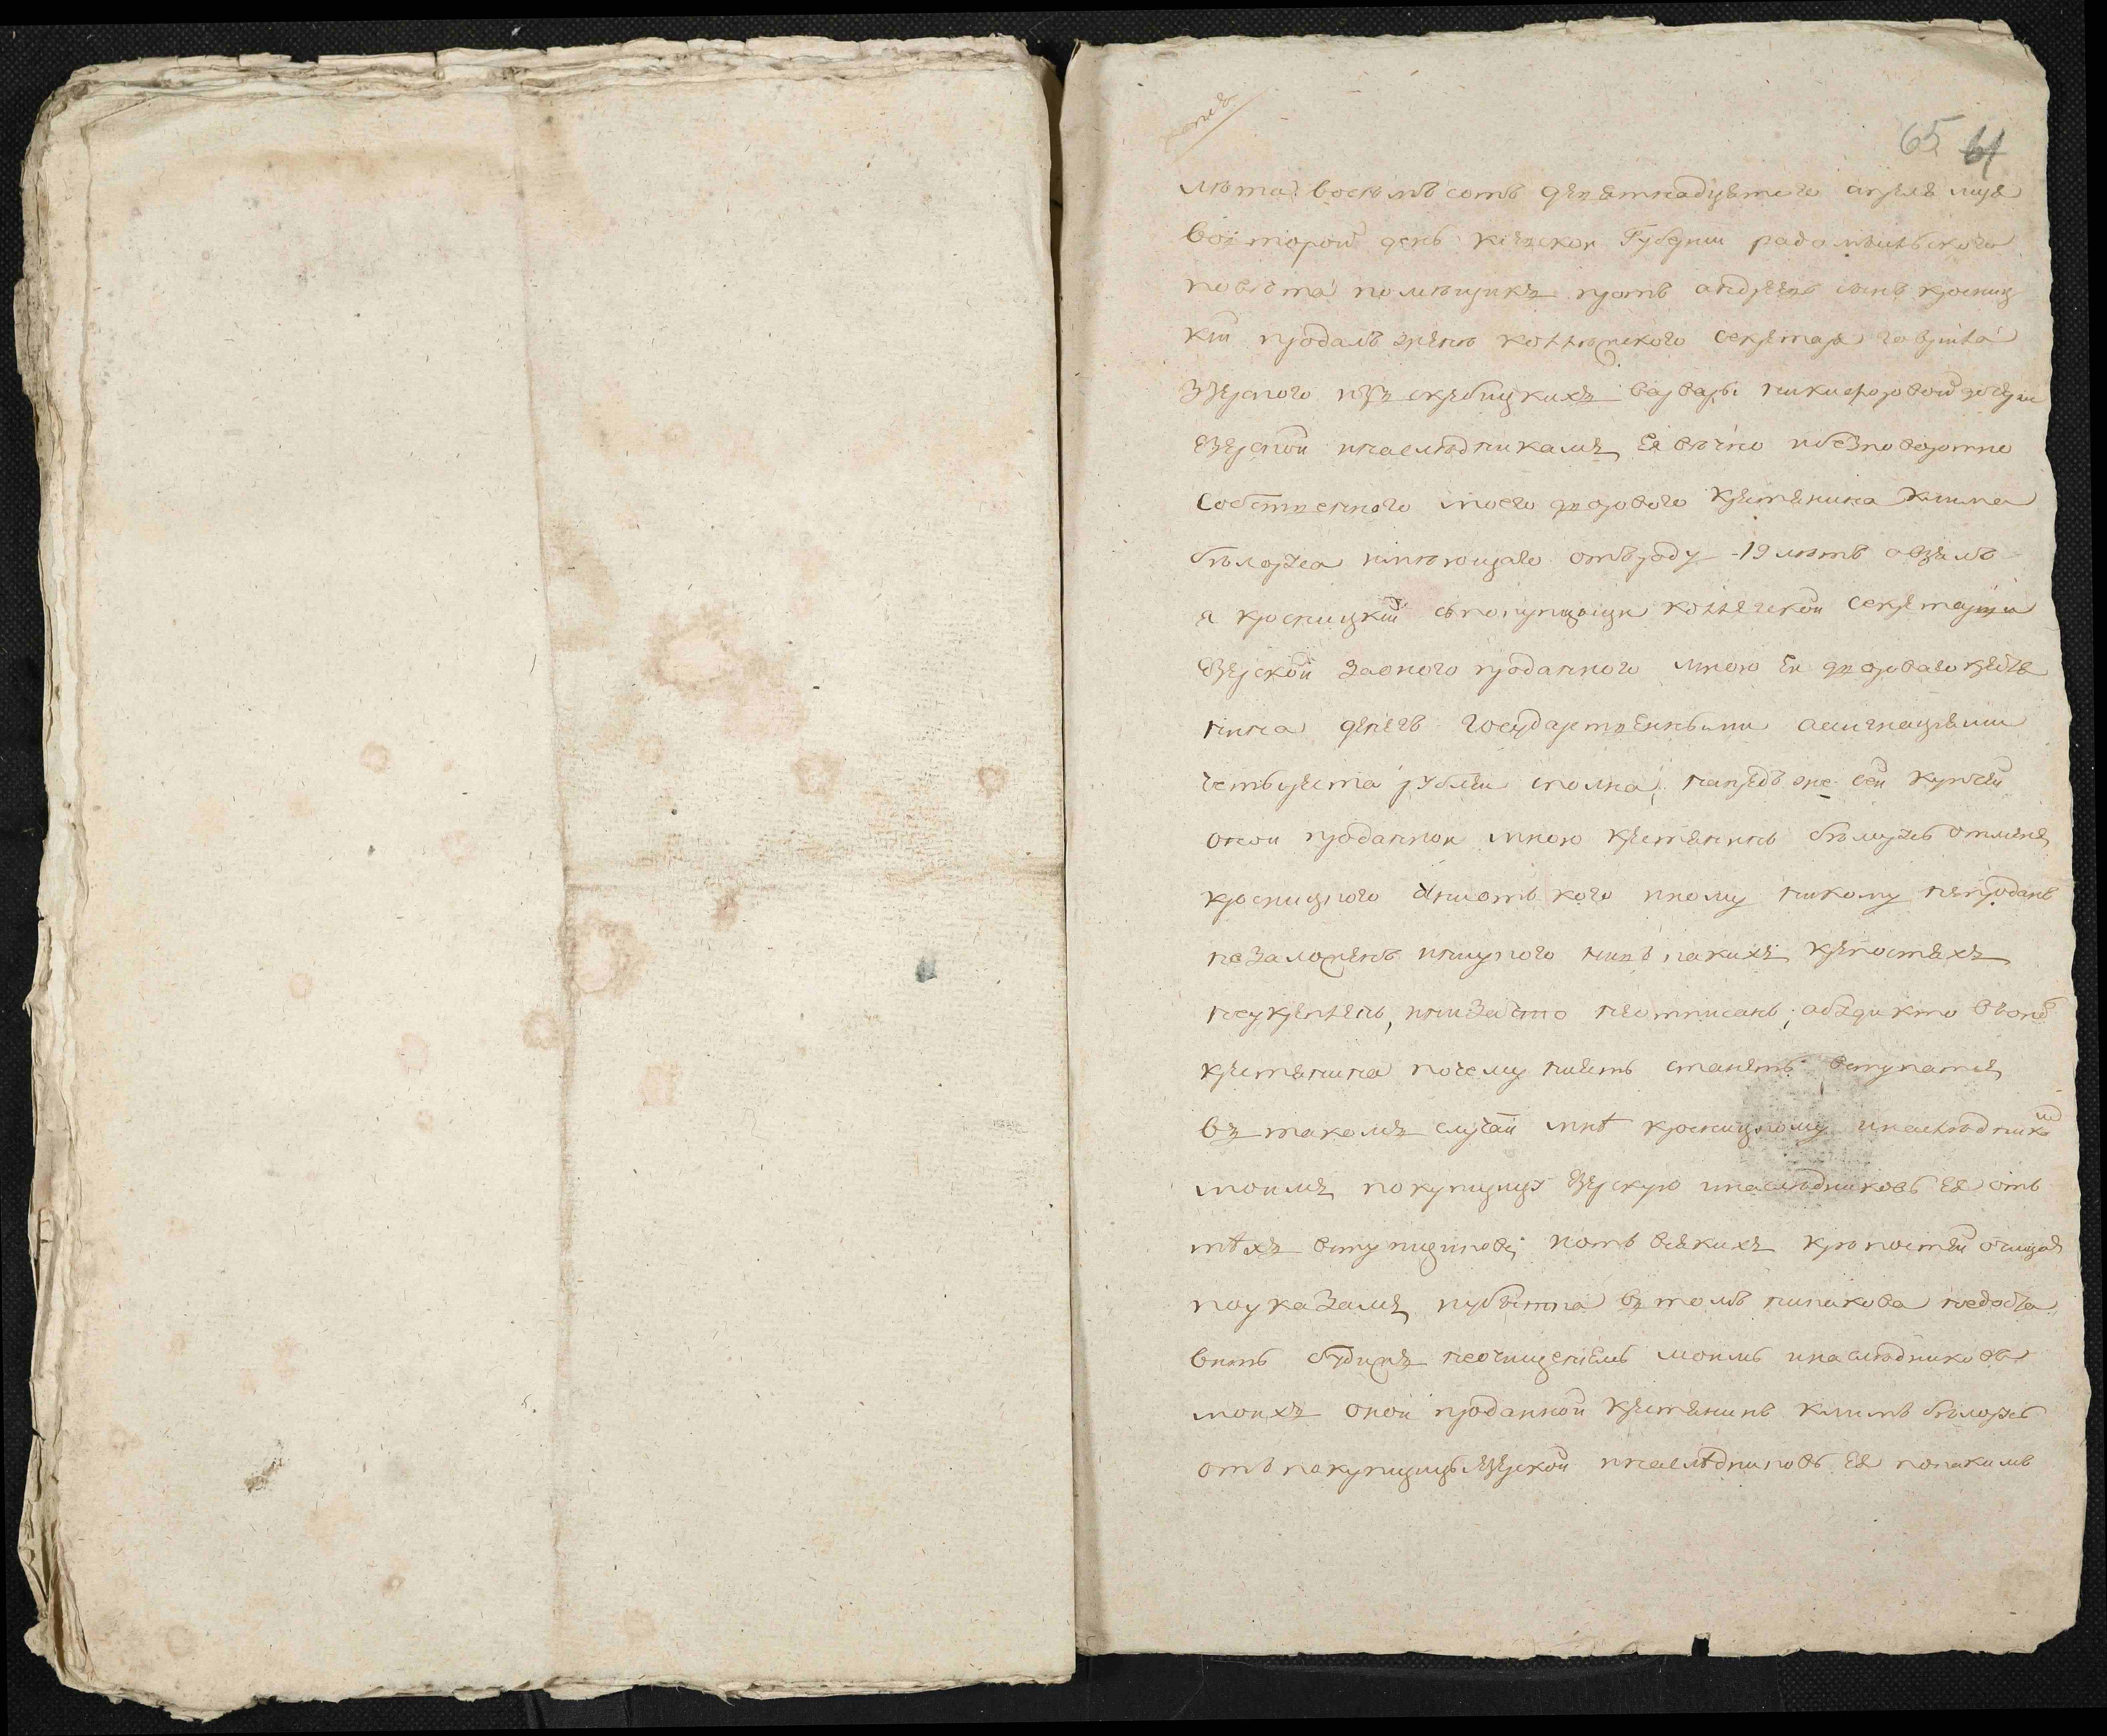 копия
65 61
лѣта восемъ сотъ девятнадцатого апреля мца
во второй день киевской Губернии радомысльского
повѣта помѣщикъ андреевъ сынъ кросниц
кий продалъ женѣ коллежского секретаря гаврила
Езерского изъ скребицкихъ варвары никифоровой дочери
Езерской инаслѣдникамъ Ея вѣчно ибезповоротно
собственного моего дворового крестянина клима
имѣющаго отъроду 19 лѣтъ авзялъ
я кросницкий съпокупщици коллежской секретарши
Езерской заоного проданного мною Ей дворового крестя
нина денегъ государственными асигнациями
четыреста рублей сполна, напредъ же сей купчей
оной проданной мною крестянинъ отменя
кросницкого ниоткого иному никому непроданъ
незаложенъ ниукого нивъкакихъ крепостяхъ
неукрепленъ, низачто неотписанъ, абуди кто воного
крестянина почему нибть станетъ вступатся
въ такомъ случаи мнѣ кросницкому инаслѣдником
моимъ покупщицу Езерскую инаслѣдниковъ Ея отъ
тѣхъ вступщиковъ, иотъ всякихъ крѣпостей очищая
поуказамъ иубытка въ томъ никакова недоста
вить будижъ неочищениемъ моимъ инаслѣдниковъ
моихъ оной проданной крестянинъ климъ
отъ покупщици Езерской инаслѣдниковъ Ея покакимъ